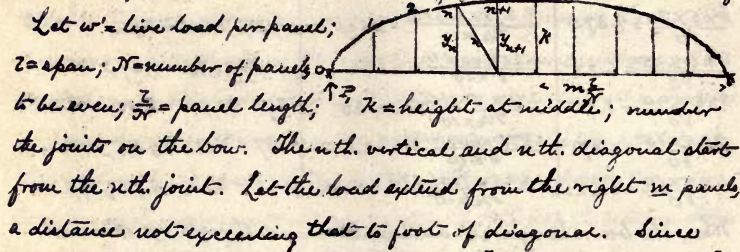 Let w' = live load per panel;
l = span; N = number of panels,
to be even; l/N = panel length; K = height at middle; number
the joints on the bow. The nth. vertical and nth. diagonal start
from the nth. joint. Let the load extend from the right m panels,
a distance not exceeding that to foot of diagonal. Since
2 n n+1
y_n n y_n+1 K
0 P_1 m l/N